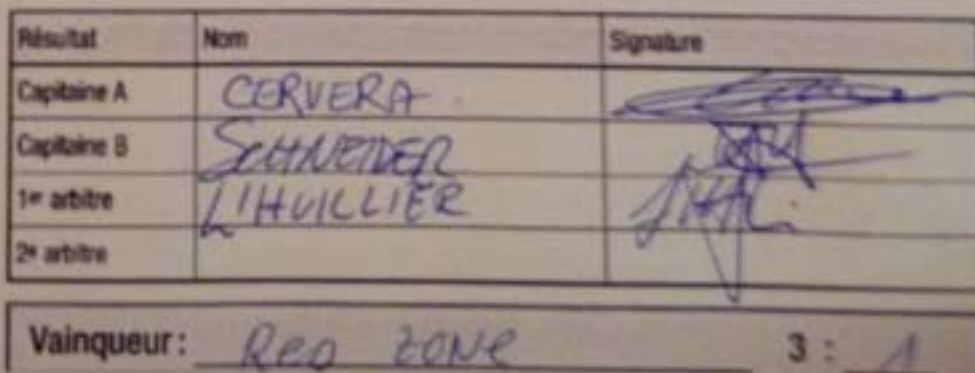 Résultat Nom Signature
Capitaine A CERVERA
Capitaine B SCHNEIDER
1er arbitre L'HUILLIER
2e arbitre
Vainqueur: Red zone 3 : 1